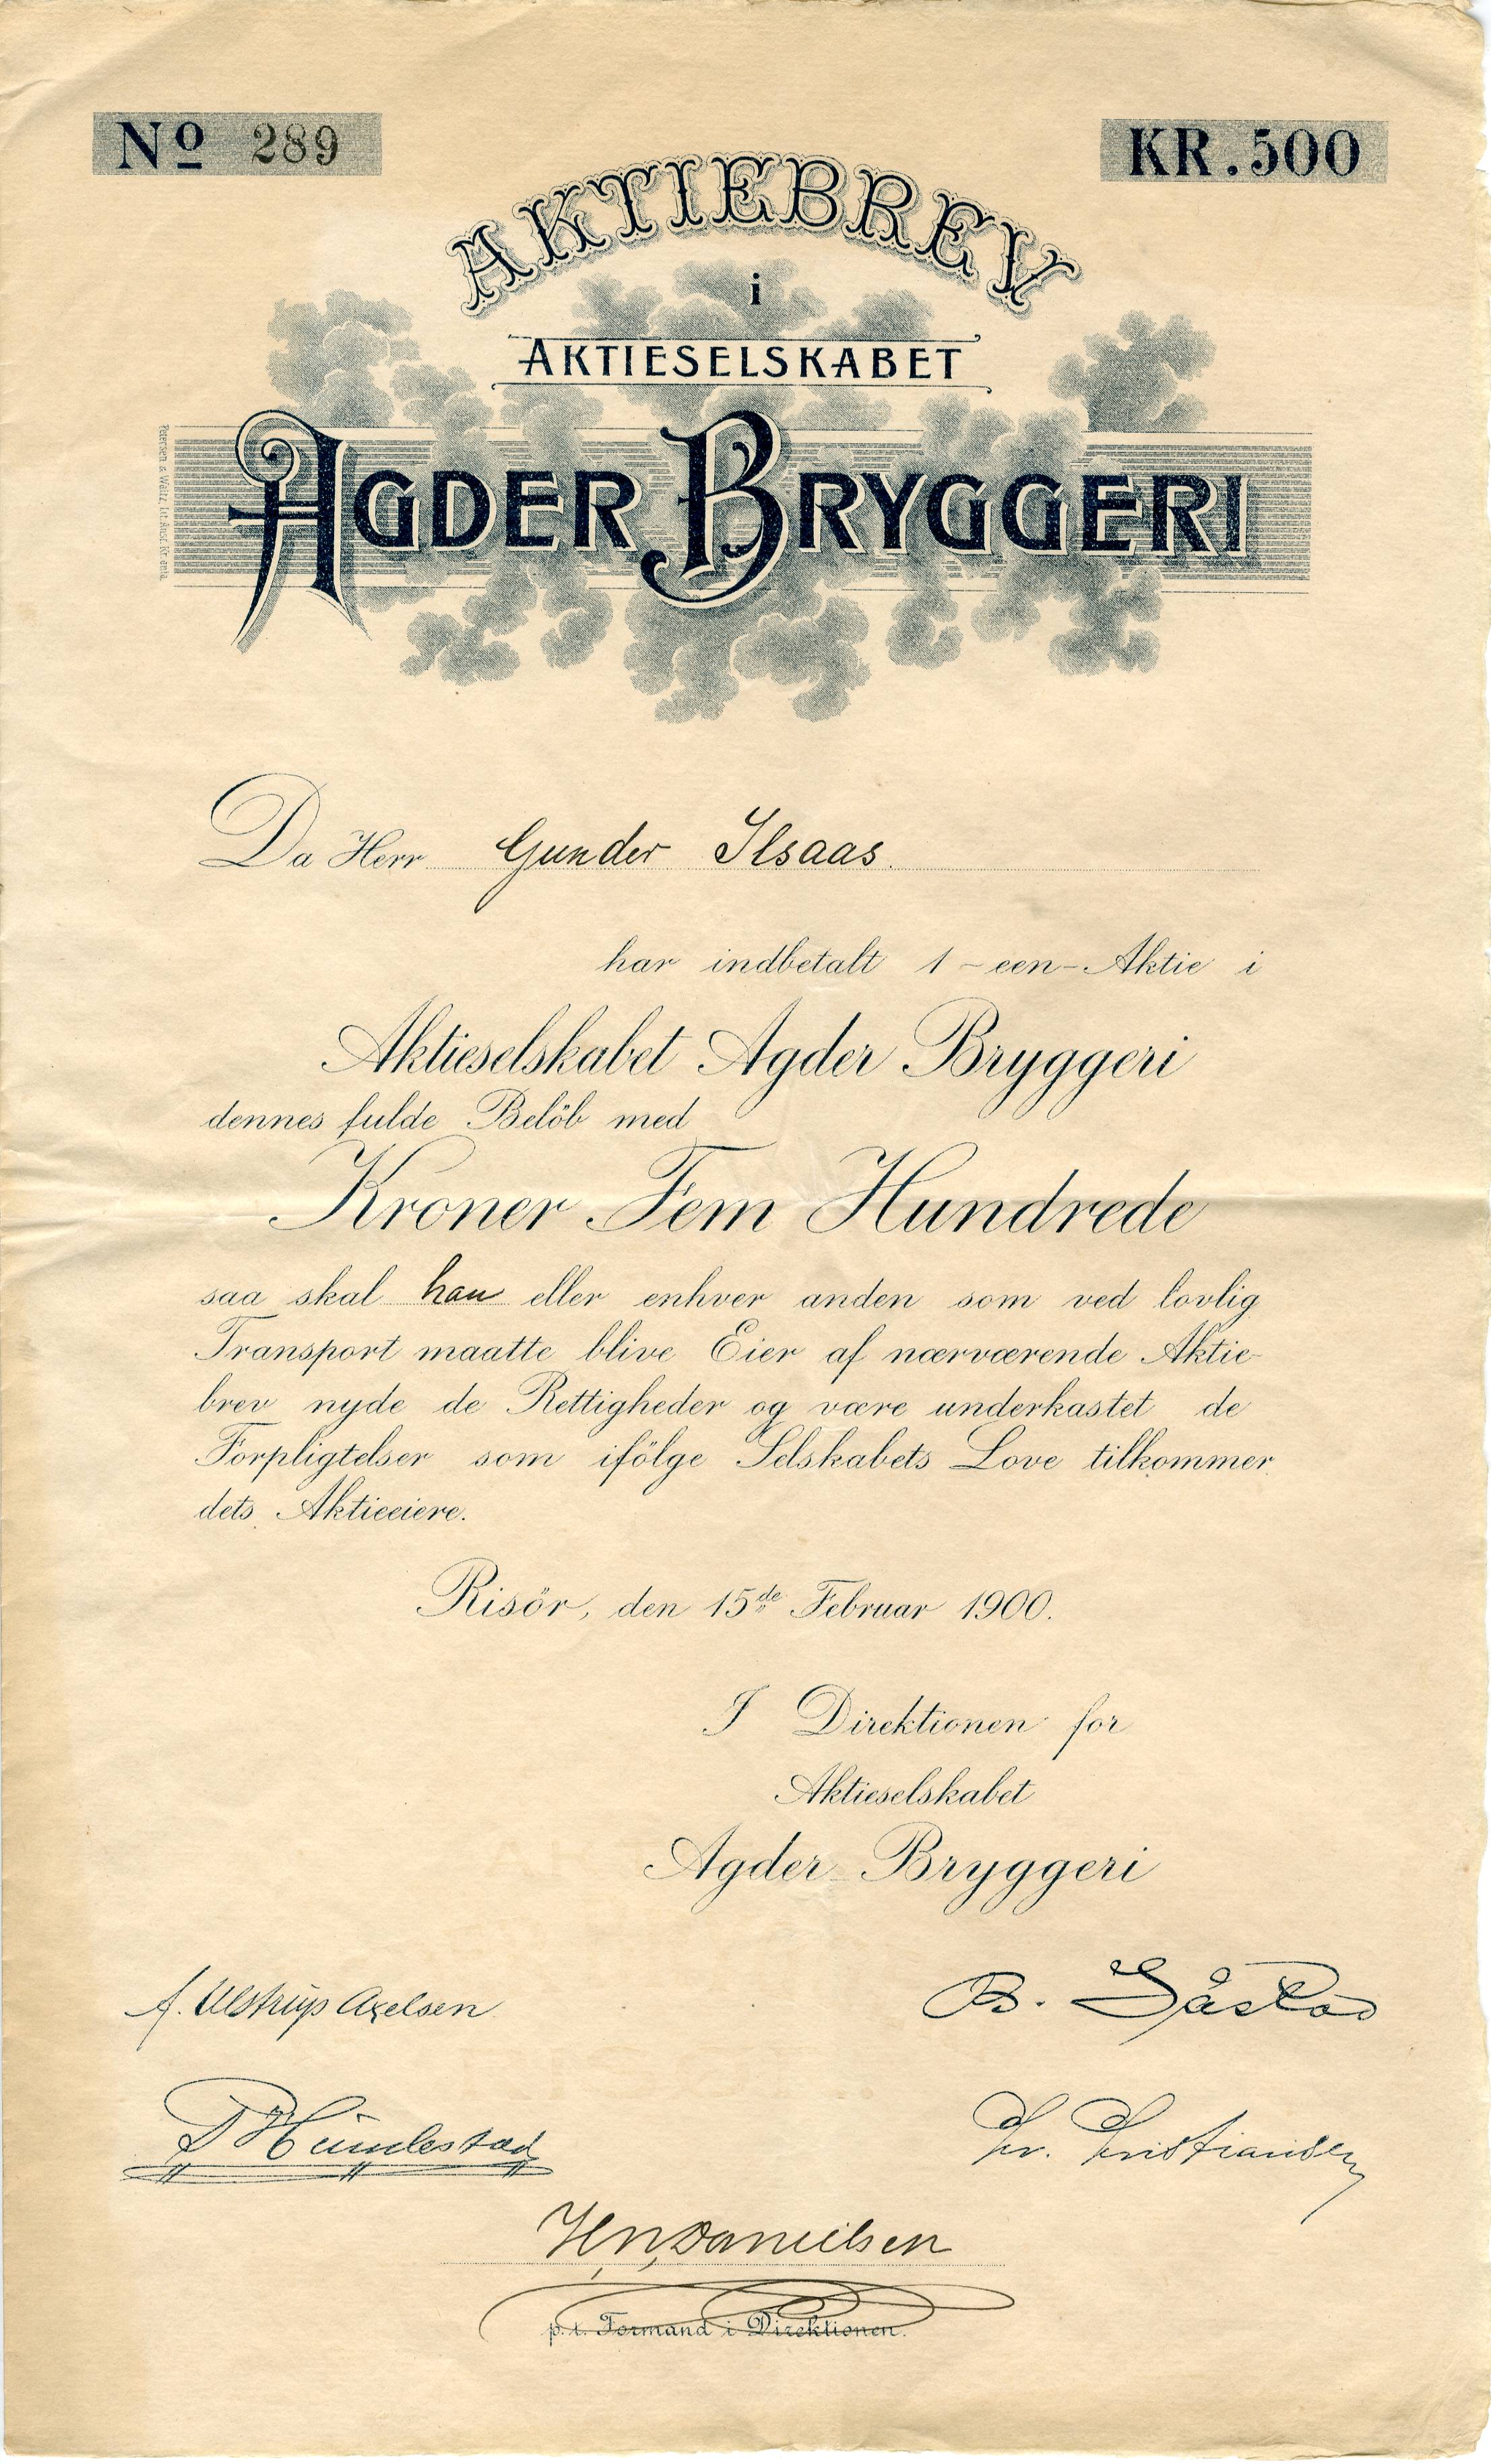 No 289
KR. 500
AKTIEBREV
i
AKTIESELSKABET
AGDER BRYGGERI
Petersen & Waitz, lit. Anst. Kr.ania.
Da Herr Gunder Ilsaas
har indbetalt 1 - een - Aktie i
Aktieselskabet Agder Bryggeri
dennes fulde Belöb med
Kroner Fem Hundrede
saa skal han eller enhver anden som ved lovlig
Transport maatte blive Eier af nærværende Aktie-
brev nyde de Rettigheder og være underkastet de
Forpligtelser som ifölge Selskabets Love tilkommer
dets Aktieeiere.
Risör, den 15de Februar 1900.
I Direktionen for
Aktieselskabet
Agder Bryggeri
A. Ulstrup Axelsen
B.
Kr. Kristiansen
H. N. Danielsen
p. t. Formand i Direktionen.